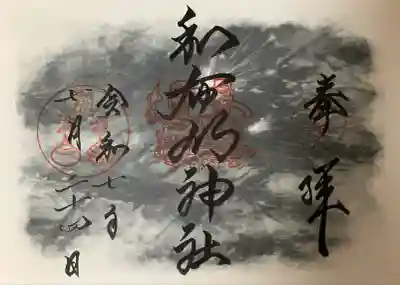 奉拝
和布刈神社
令和七年
月二十四日